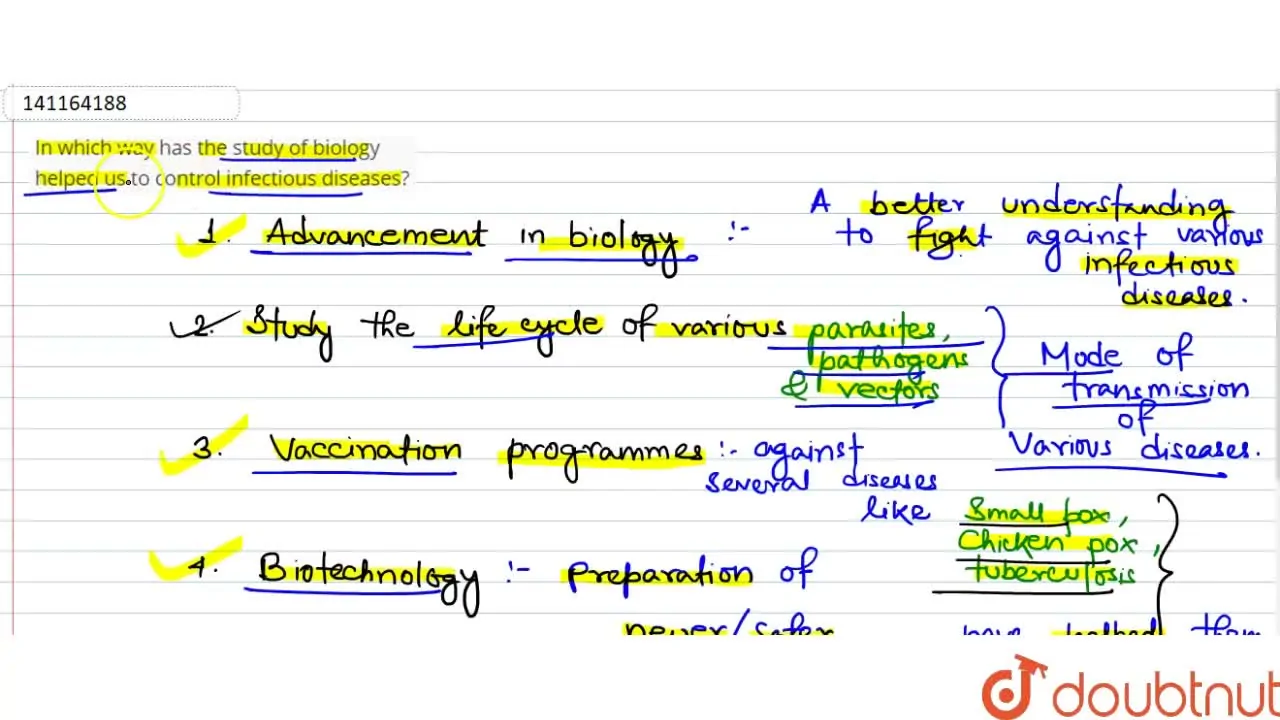 141164188
In which way has the study of biology
helped us to control infectious diseases?
1. Advancement in biology :- A better understanding
to fight against various
infectious
diseases.
2. Study the life cycle of various parasites,
pathogens
& vectors
Mode of
transmission
of
Various diseases.
3. Vaccination programmes :- against
several diseases
like Small pox,
Chicken pox,
tuberculosis
4. Biotechnology :- preparation of
newer/safer
have helped them
doubtnut